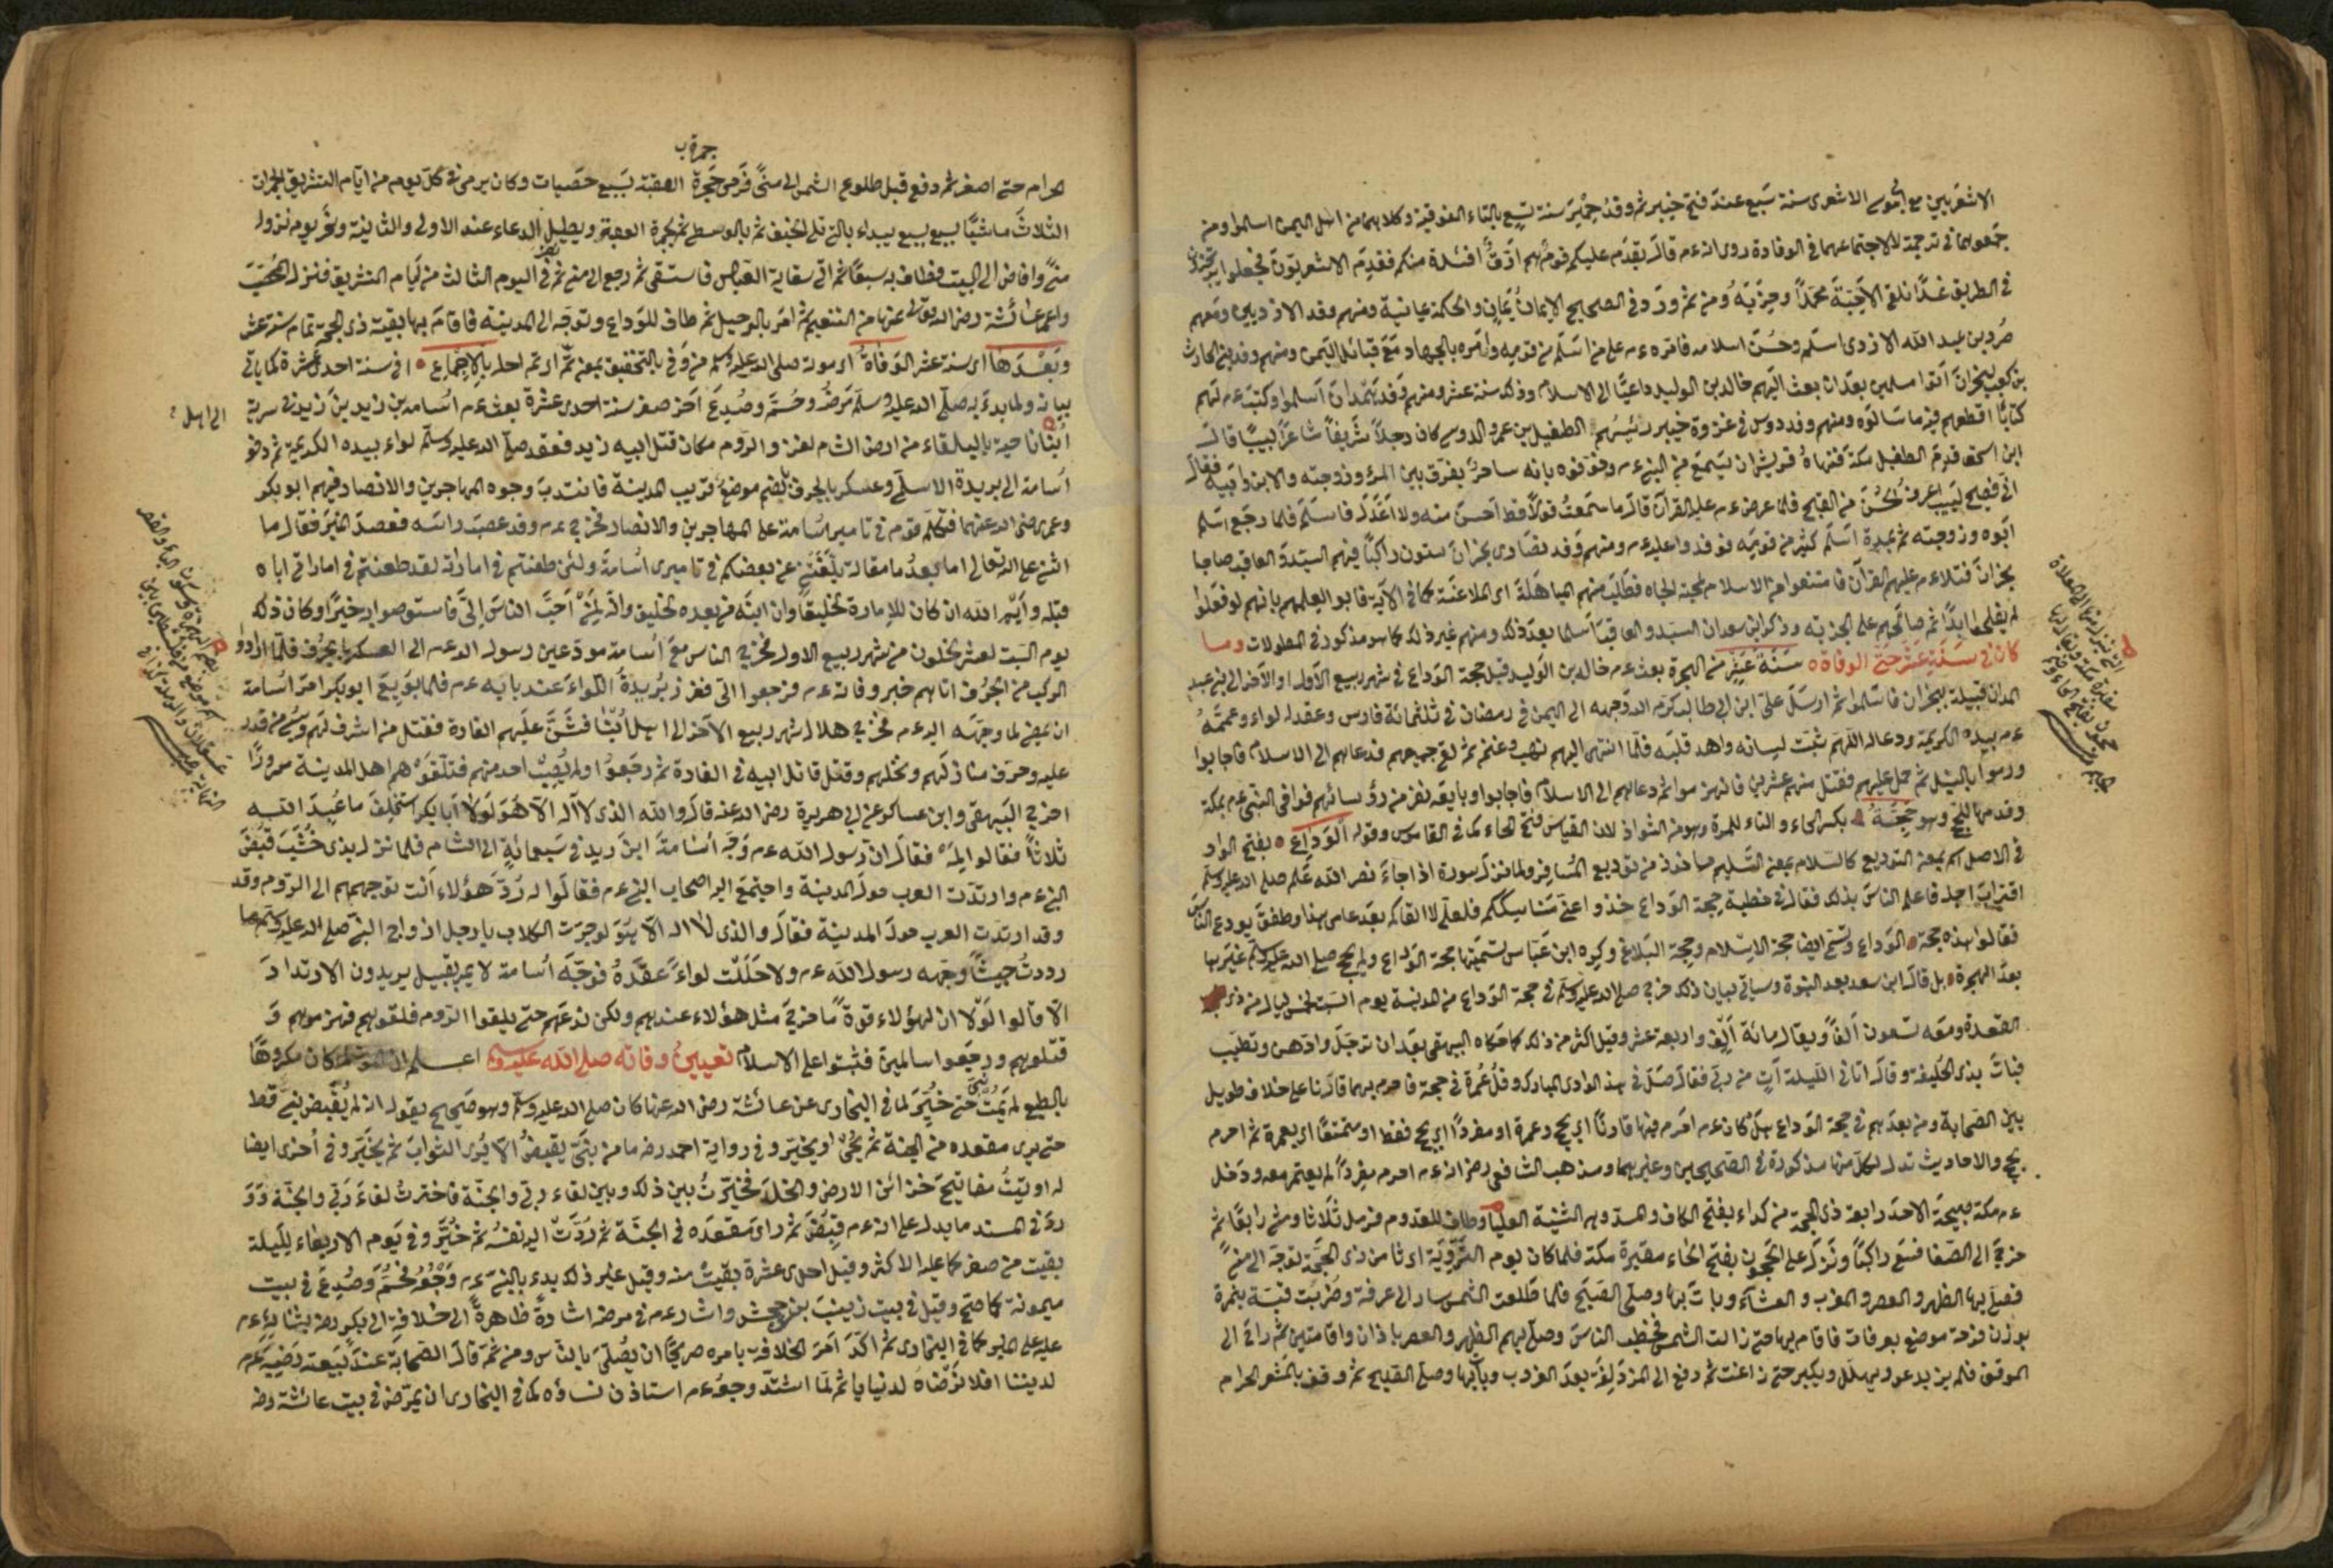 الاشعريين مع ابى موسى الاشعرى سنة سبع عند فتح خيبر ثم وفد حمير سنة تسع بالتاء الفوقية وكلاهما من اهل اليمن اسلموا ومن
جمعهما فى ترجمة لا لاجتماعهما فى الوفادة روى انه عم قال يقدم عليكم قوم هم ارق افئدة منكم فقدم الاشعريون فجعلوا يرتجزون
فى الطريق غدا نلقى الاحبة محمدا وحزبه ومن ثم ورد فى الصحيح الايمان يمان والحكمة يمانية ومنهم وفد الازديين ومنهم
صرد بن عبد الله الازدى اسلم وحسن اسلامه فامره عم على من اسلم من قومه وامره بالجهاد مع قبائل اليمن ومنهم وفد بنى الحارث
بن كعب بنجران اتوا مسلمين بعد ان بعث اليهم خالد بن الوليد داعيا الى الاسلام وذلك سنة عشر ومنهم وفد همدان اسلموا وكتب عم لهم
كتابا اقطعهم فيه ما سالوه ومنهم وفد دوس فى غزوة خيبر رئيسهم الطفيل بن عمرو الدوسى كان رجلا شريفا شاعرا لبيبا قال
ابن اسحق قدم الطفيل مكة فنهاه قريش ان يسمع من النبى عم وخوفوه بانه ساحر يفرق بين المرء وزوجته والابن وابيه فقال
انى فصيح لبيب اعرف الحسن من القبيح فلما عرض عم عليه القرآن قال ما سمعت قولا قط احسن منه ولا اعدل فاسلم فلما رجع اسلم
ابوه وزوجته ثم اسلم كثير من قومه فوفدوا عليه عم ومنهم وفد نصارى نجران ستون راكبا فيهم السيد والعاقب صاحبا
نجران فتلا عم عليهم القرآن فامتنعوا من الاسلام لمحبة الجاه فطلب منهم المباهلة اى الملاعنة كما فى الآية فابوا لعلمهم بانهم لو فعلوا
لم يفلحوا ابدا ثم صالحهم على الجزية وذكر ابن سعد ان السيد والعاقب اسلما بعد ذلك ومنهم غير ذلك كما هو مذكور فى المطولات وما
كان فى سنة عشر حتى الوفاة سنة عشر من الهجرة بعث عم خالد بن الوليد قبل حجة الوداع فى شهر ربيع الاول او الآخر الى بنى عبد
المدان قبيلة بنجران فاسلموا ثم ارسل على ابن ابى طالب كرم الله وجهه الى اليمن فى رمضان فى ثلثمائة فارس وعقد له لواء وعممه
عم بيده الكريمة ودعا له اللهم ثبت لسانه واهد قلبه فلما انتهى اليهم نهب وغنم ثم لقى جميعهم فدعاهم الى الاسلام فاجابوا
ورموا بالنبل ثم حمل عليهم فقتل منهم عشرين فانهزموا ثم دعاهم الى الاسلام فاجابوا وبايعه نفر من رؤسائهم فوافى النبى عم بمكة
وقدمها للحج وهو حجة بكسر الحاء والتاء للمرة وهو من الشواذ لان القياس فتح الحاء كما فى القاموس وقوله الوداع بفتح الواو
فى الاصل اسم بمعنى التوديع كالسلام بمعنى التسليم ماخوذ من توديع المسافر ولما نزل سورة اذا جاء نصر الله علم صلى الله عليه وسلم
اقتراب اجله فاعلم الناس بذلك فقال فى خطبة حجة الوداع خذوا عنى مناسككم فلعلى لا القاكم بعد عامى هذا وطفق يودع الناس
فقالوا هذه حجة الوداع وتسمى ايضا حجة الاسلام وحجة البلاغ وكره ابن عباس تسميتها حجة الوداع ولم يحج صلى الله عليه وسلم غيرها
بعد الهجرة بل قال ابن سعد بعد النبوة وسياتى بيان ذلك خرج صلى الله عليه وسلم فى حجة الوداع من المدينة يوم السبت لخمس ليال من ذى
القعدة ومعه تسعون الفا ويقال مائة الف واربعة عشر وقيل اكثر من ذلك كما حكاه البيهقى بعد ان ترجل وادهن وتطيب
فبات بذى الحليفة وقال اتانى الليلة آت من ربى فقال صل فى هذا الوادى المبارك وقل عمرة فى حجة فاحرم بهما قارنا على خلاف طويل
بين الصحابة ومن بعدهم فى حجة الوداع هل كان عم احرم فيها قارنا اى بحج وعمرة او مفردا اى بحج فقط او متمتعا اى بعمرة ثم احرم
بحج والاحاديث تدل لكل منها مذكورة فى الصحيحين وغيرهما ومذهب الشافعى رضى انه عم احرم مفردا لم يعتمر معه ودخل
عم مكة صبيحة الاحد رابعة ذى الحجة من كداء بفتح الكاف والمد وهى الثنية العليا وطاف للقدوم فرمل ثلاثا ومشى رابعا ثم
خرج الى الصفا فسعى راكبا ونزل على الحجون بفتح الحاء مقبرة مكة فلما كان يوم التروية اى ثامن ذى الحجة توجه الى منى
فصلى بها الظهر والعصر والمغرب والعشاء وبات بها وصلى الصبح فلما طلعت الشمس سار الى عرفة وضربت قبته بنمرة
بوزن فرحة موضع بعرفات فاقام بها حتى زالت الشمس فخطب الناس وصلى بهم الظهر والعصر باذان واقامتين ثم راح الى
الموقف فلم يزل يدعو ويهلل ويكبر حتى زاغت ثم دفع الى المزدلفة بعد الغروب وبات بها وصلى الصبح ثم وقف بالمشعر الحرام
جمرة ب
الحرام حتى اصفر ثم دفع قبل طلوع الشمس الى منى فرمى جمرة العقبة بسبع حصيات وكان يرمى فى كل يوم من ايام التشريق الجمرات
الثلاث ماشيا بسبع سبع يبداء بالتى تلى الخيف ثم بالوسطى ثم بجمرة العقبة ويطيل الدعاء عند الاولى والثانية ونحر يوم نزوله
منى وافاض الى البيت فطاف به سبعا ثم اتى سقاية العباس فاستقى ثم رجع الى منى ثم نفر فى اليوم الثالث من ايام التشريق فنزل المحصب
واعمر عائشة رضى الله تعالى عنها من التنعيم ثم امر بالرحيل ثم طاف للوداع وتوجه الى المدينة فاقام بها بقية ذى الحجة تمام سنة عشر
وبعدها اى سنة عشر الوفاة اى موته صلى الله عليه وسلم من وفى بالتخفيف بمعنى تم اى تم اجله بالاجماع فى سنة احدى عشرة كما ياتى
بيانه ولما بدئ به صلى الله عليه وسلم مرض وحمى وصدع آخر صفر سنة احدى عشرة بعث عم اسامة بن زيد بن زيد فى سرية الى اهل
ابنا ناحية بالبلقاء من ارض الشام لغزو الروم مكان قتل ابيه زيد فعقد صلى الله عليه وسلم لواء بيده الكريمة ثم دفع
اسامة الى بريدة الاسلمى وعسكر بالجرف بالضم موضع قريب المدينة فانتدب وجوه المهاجرين والانصار فيهم ابو بكر
وعمر رضى الله عنهما فتكلم قوم فى تامير اسامة على المهاجرين والانصار فخرج عم وقد عصب راسه فصعد المنبر فقال ما
اثنى على الله تعالى اما بعد ما مقالة بلغتنى عن بعضكم فى تاميرى اسامة ولئن طعنتم فى امارته لقد طعنتم فى امارتى اباه
قبله وايم الله ان كان للامارة لخليقا وان ابنه من بعده لخليق وانه لمن احب الناس الى فاستوصوا به خيرا وكان ذلك
يوم السبت لعشر يخلون من شهر ربيع الاول فخرج الناس مع اسامة مودعين رسول الله عم الى العسكر بالجرف فلما ارادوا
الركب من الجرف اتاهم خبر وفاته عم فرجعوا الى فغرز بريدة اللواء عند بابه عم فلما بويع ابو بكر امر اسامة
ان يمضى لما وجهه اليه عم فخرج هلال شهر ربيع الآخر الى اهل ابنا فشن عليهم الغارة فقتل من اشرف لهم وسبى من قدر
عليه وحرق منازلهم ونخلهم وقتل قاتل ابيه فى الغارة ثم رجعوا ولم يصب احد منهم فتلقوهم اهل المدينة سرورا
اخرج البيهقى وابن عساكر عن ابى هريرة رضى الله عنه قال والله الذى لا اله الا هو لولا ابا بكر استخلف ما عبد الله
ثلاثا فقالوا له فقال ان رسول الله عم وجه اسامة ابن زيد فى سبعمائة الى الشام فلما نزل بذى خشب قبض
النبى عم وارتدت العرب حول المدينة واجتمع اليه اصحاب النبى عم فقالوا له رد هؤلاء انت توجههم الى الروم وقد
وقد ارتدت العرب حول المدينة فقال والذى لا اله الا هو لو جرت الكلاب بارجل ازواج النبى صلى الله عليه وسلم ما
رددت جيشا وجهه رسول الله عم ولا حللت لواء عقده فوجه اسامة لا يمر بقبيل يريدون الارتداد
الا قالوا لولا ان لهؤلاء قوة ما خرج مثل هؤلاء عندهم ولكن ندعهم حتى يلقوا الروم فلقوهم فهزموهم و
قتلوهم ورجعوا سالمين فثبتوا على الاسلام تعيين وفاته صلى الله عليه وسلم اعلم ان الموت لما كان مكروها
بالطبع لم يمت نبى حتى خير لما فى البخارى عن عائشة رضى الله عنها كان صلى الله عليه وسلم وهو صحيح يقول انه لم يقبض نبى قط
حتى يرى مقعده من الجنة ثم يحى او يخير وفى رواية احمد رضه ما من نبى يقبض الا يرى الثواب ثم يخير وفى اخرى ايضا
له اوتيت مفاتيح خزائن الارض والخلد فخيرت بين ذلك وبين لقاء ربى والجنة فاخترت لقاء ربى والجنة وو
رد فى المسند ما يدل على انه عم قبض ثم راى مقعده فى الجنة ثم ردت اليه نفسه ثم خير وفى يوم الاربعاء لليلة
بقيت من صفر كما عليه الاكثر وقيل احدى عشرة بقيت منه وقيل غير ذلك بدء بالنبى عم وجعه فحم وصدع فى بيت
ميمونة كما صح وقيل فى بيت زينب بنت جحش واشار عم فى مرضه اشارة ظاهرة الى خلافة ابى بكر رضه بثنائه عم
عليه على المنبر كما فى البخارى ثم اكد امر الخلافة بامره صريحا ان يصلى بالناس ومن ثمة قال الصحابة عند بيعته رضيه عم
لديننا افلا نرضاه لدنيانا ثم لما اشتد وجعه عم استاذن نساؤه كما فى البخارى ان يمرض فى بيت عائشة رضه